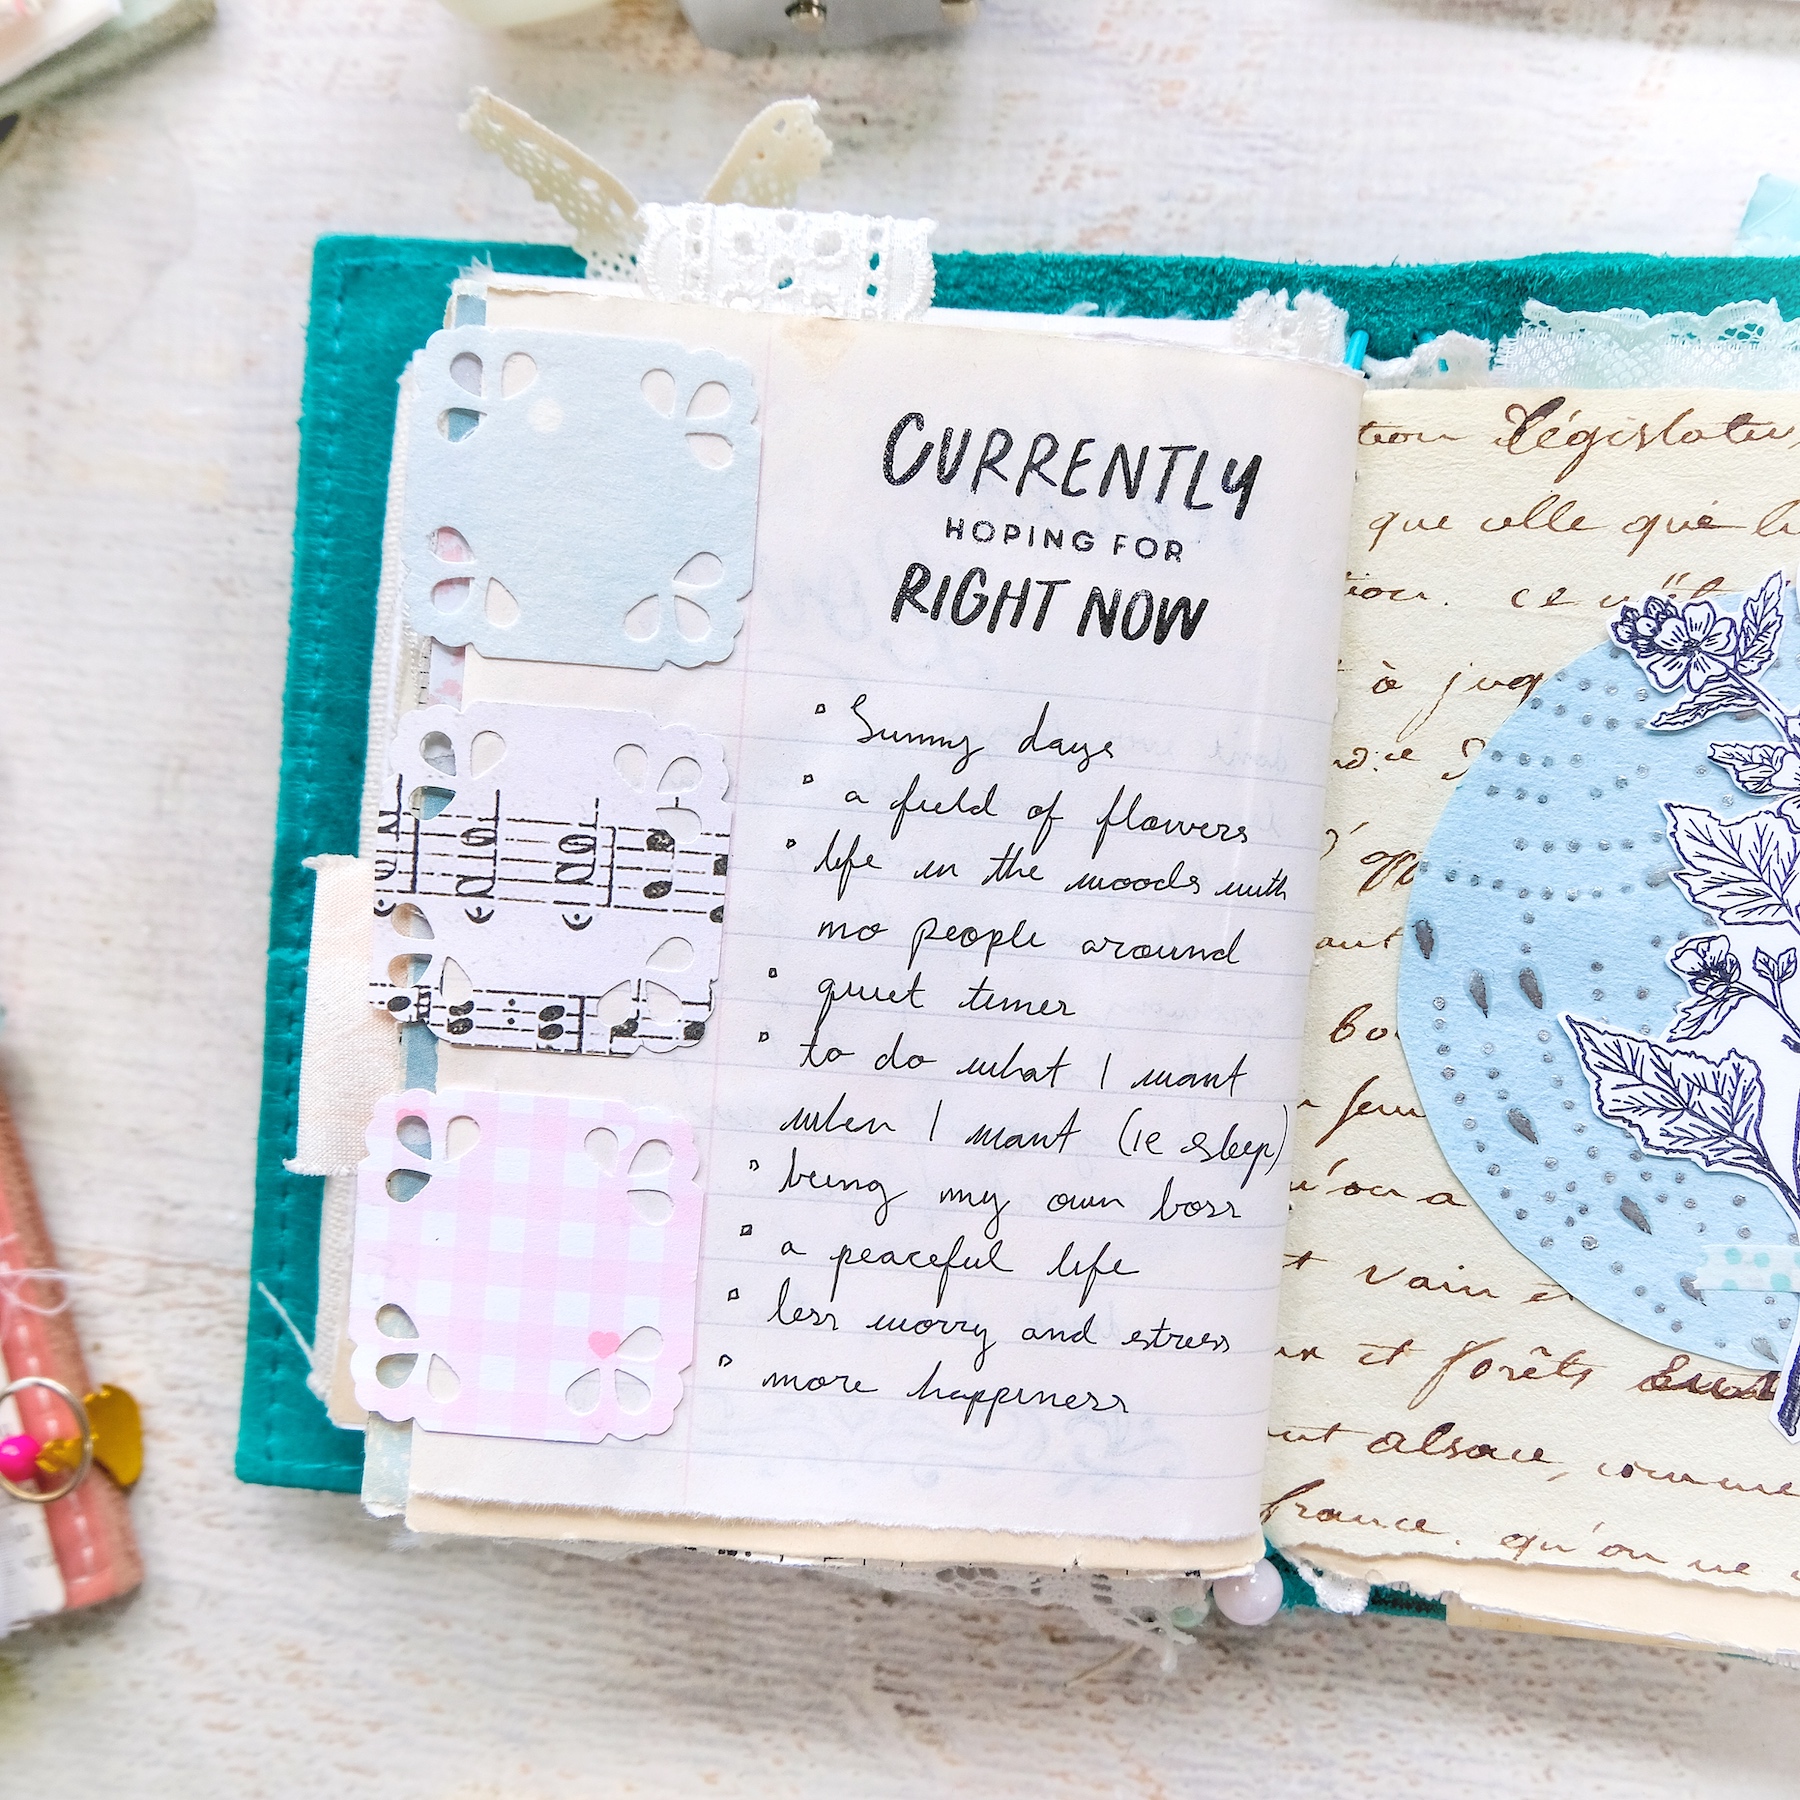 CURRENTLY
HOPING FOR
RIGHT NOW
Sunny days
a field of flowers
life in the woods with
no people around
quiet times
to do what I want
when I want (ie sleep)
being my own boss
a peaceful life
less worry and stress
more happiness
que celle que
à
vain et
et forêts
alsace, comme
france. qu'on ne